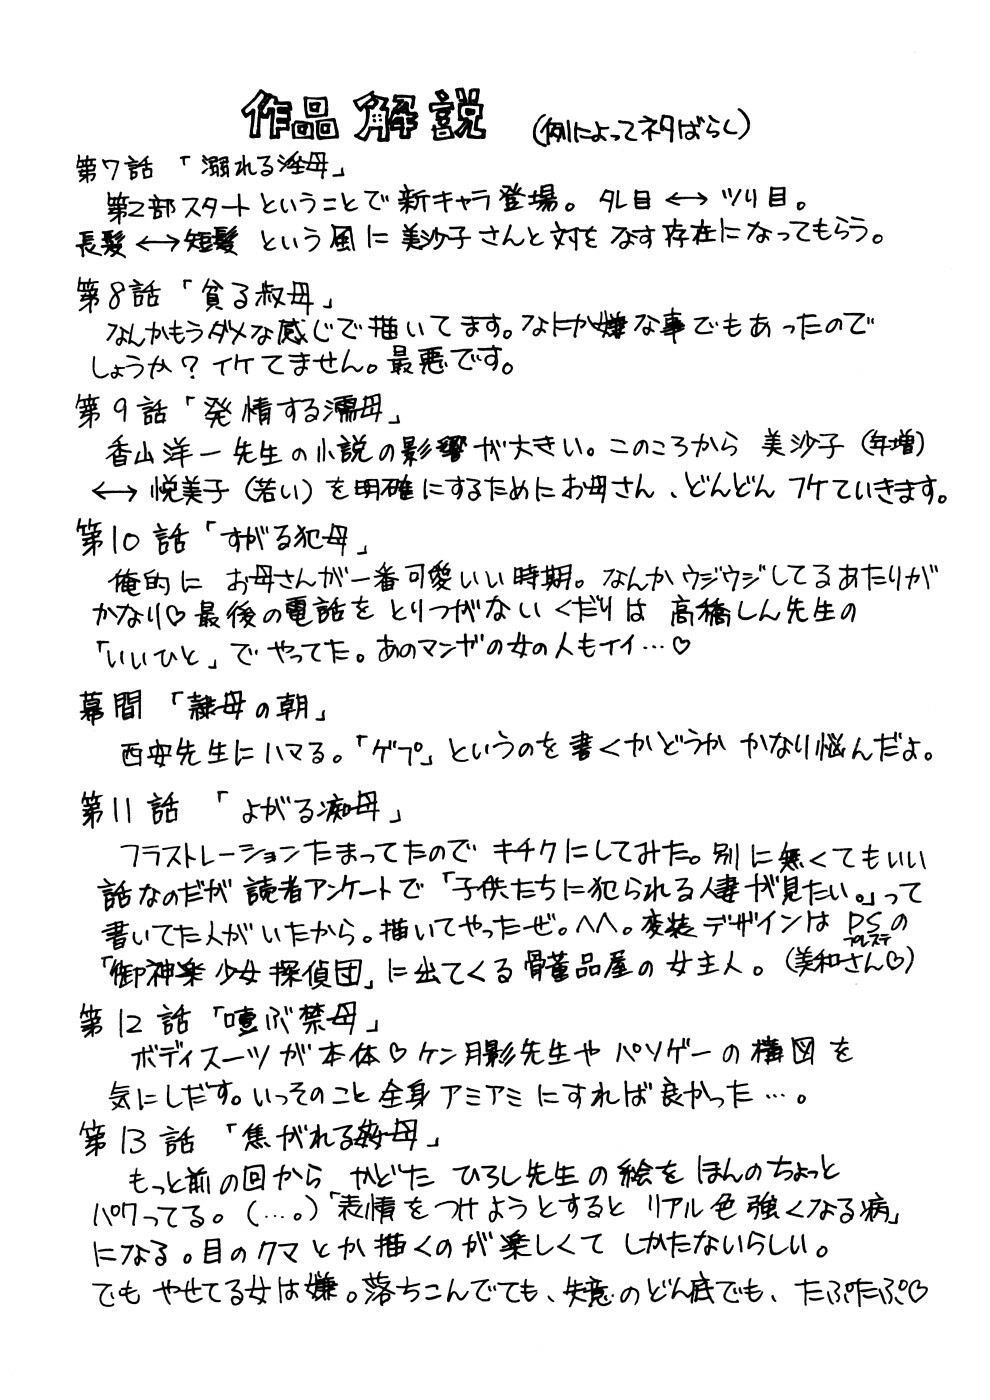 作品解説 (例によってネタばらし)
第7話 「溺れる淫母」
第2部スタートということで新キャラ登場。 タレ目 ←→ ツリ目。
長髪 ←→ 短髪 という風に美沙子さんと対をなす存在になってもらう。
第8話 「貧る叔母」
なんかもうダメな感じで描いてます。なにか嫌な事でもあったので
しょうか? イケてません。最悪です。
第9話 「発情する濡母」
香山洋一先生の小説の影響が大きい。このころから 美沙子 (年増)
←→ 悦美子 (若い) を明確にするためにお母さん、どんどん フケていきます。
第10話 「すがる犯母」
俺的に お母さんが一番可愛いい時期。なんかウジウジしてるあたりが
かなり♡ 最後の電話を とりつがない くだりは 高橋しん先生の
「いいひと」で やってた。あのマンガの女の人もイイ…♡
幕間 「隷母の朝」
西安先生にハマる。「ゲプ」というのを書くかどうか かなり悩んだよ。
第11話 「よがる痴母」
フラストレーションたまってたので キチクにしてみた。別に無くてもいい
話なのだが 読者アンケートで「子供たちに犯られる人妻が見たい。」って
書いてた人がいたから。描いてやったぜ。へへ。変装デザインは PSの
プレステ
「御神楽少女探偵団」に出てくる骨董品屋の女主人。 (美和さん♡)
第12話 「噎ぶ禁母」
ボディスーツが本体♡ ケン月影先生や パソゲーの構図を
気にしだす。いっそのこと全身アミアミにすれば良かった…。
第13話 「焦がれる姦母」
もっと前の回から かどた ひろし先生の絵を ほんのちょっと
パクってる。(…。)「表情をつけようとすると リアル色強くなる病」
になる。目のクマとか描くのが楽しくて しかたないらしい。
でも やせてる女は嫌。落ちこんでても、失意のどん底でも、たぷたぷ♡